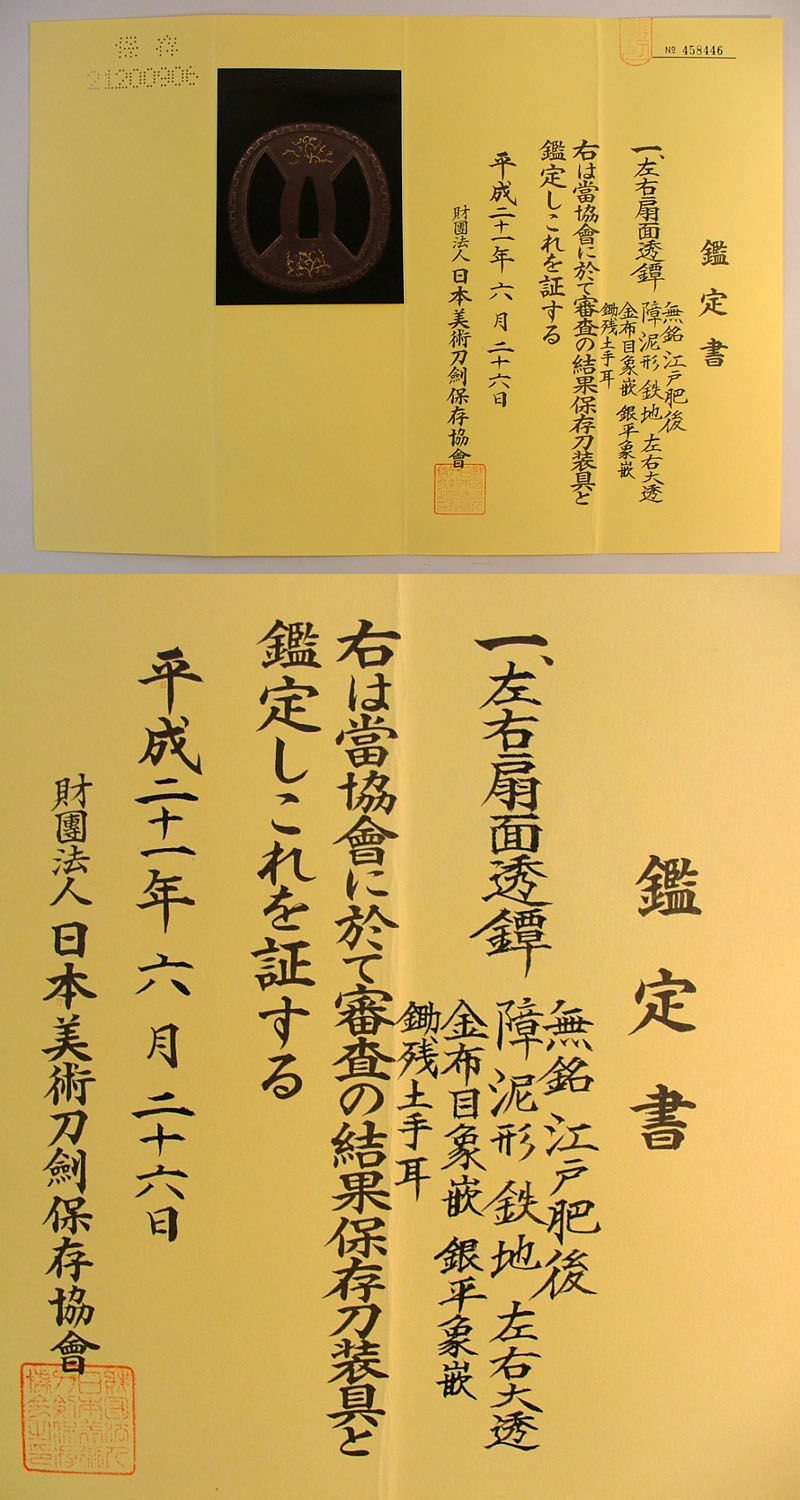 保存
21200906
№ 458446
鑑定書
一、左右扇面透鐔
無銘 江戸肥後
障泥形 鉄地 左右大透
金布目象嵌 銀平象嵌
鋤残土手耳
右は當協會に於て審査の結果保存刀装具と
鑑定しこれを証する
平成二十一年六月二十六日
財團法人 日本美術刀劍保存協會
鑑定書
一、左右扇面透鐔
無銘 江戸肥後
障泥形 鉄地 左右大透
金布目象嵌 銀平象嵌
鋤残土手耳
右は當協會に於て審査の結果保存刀装具と
鑑定しこれを証する
平成二十一年六月二十六日
財團法人 日本美術刀劍保存協會